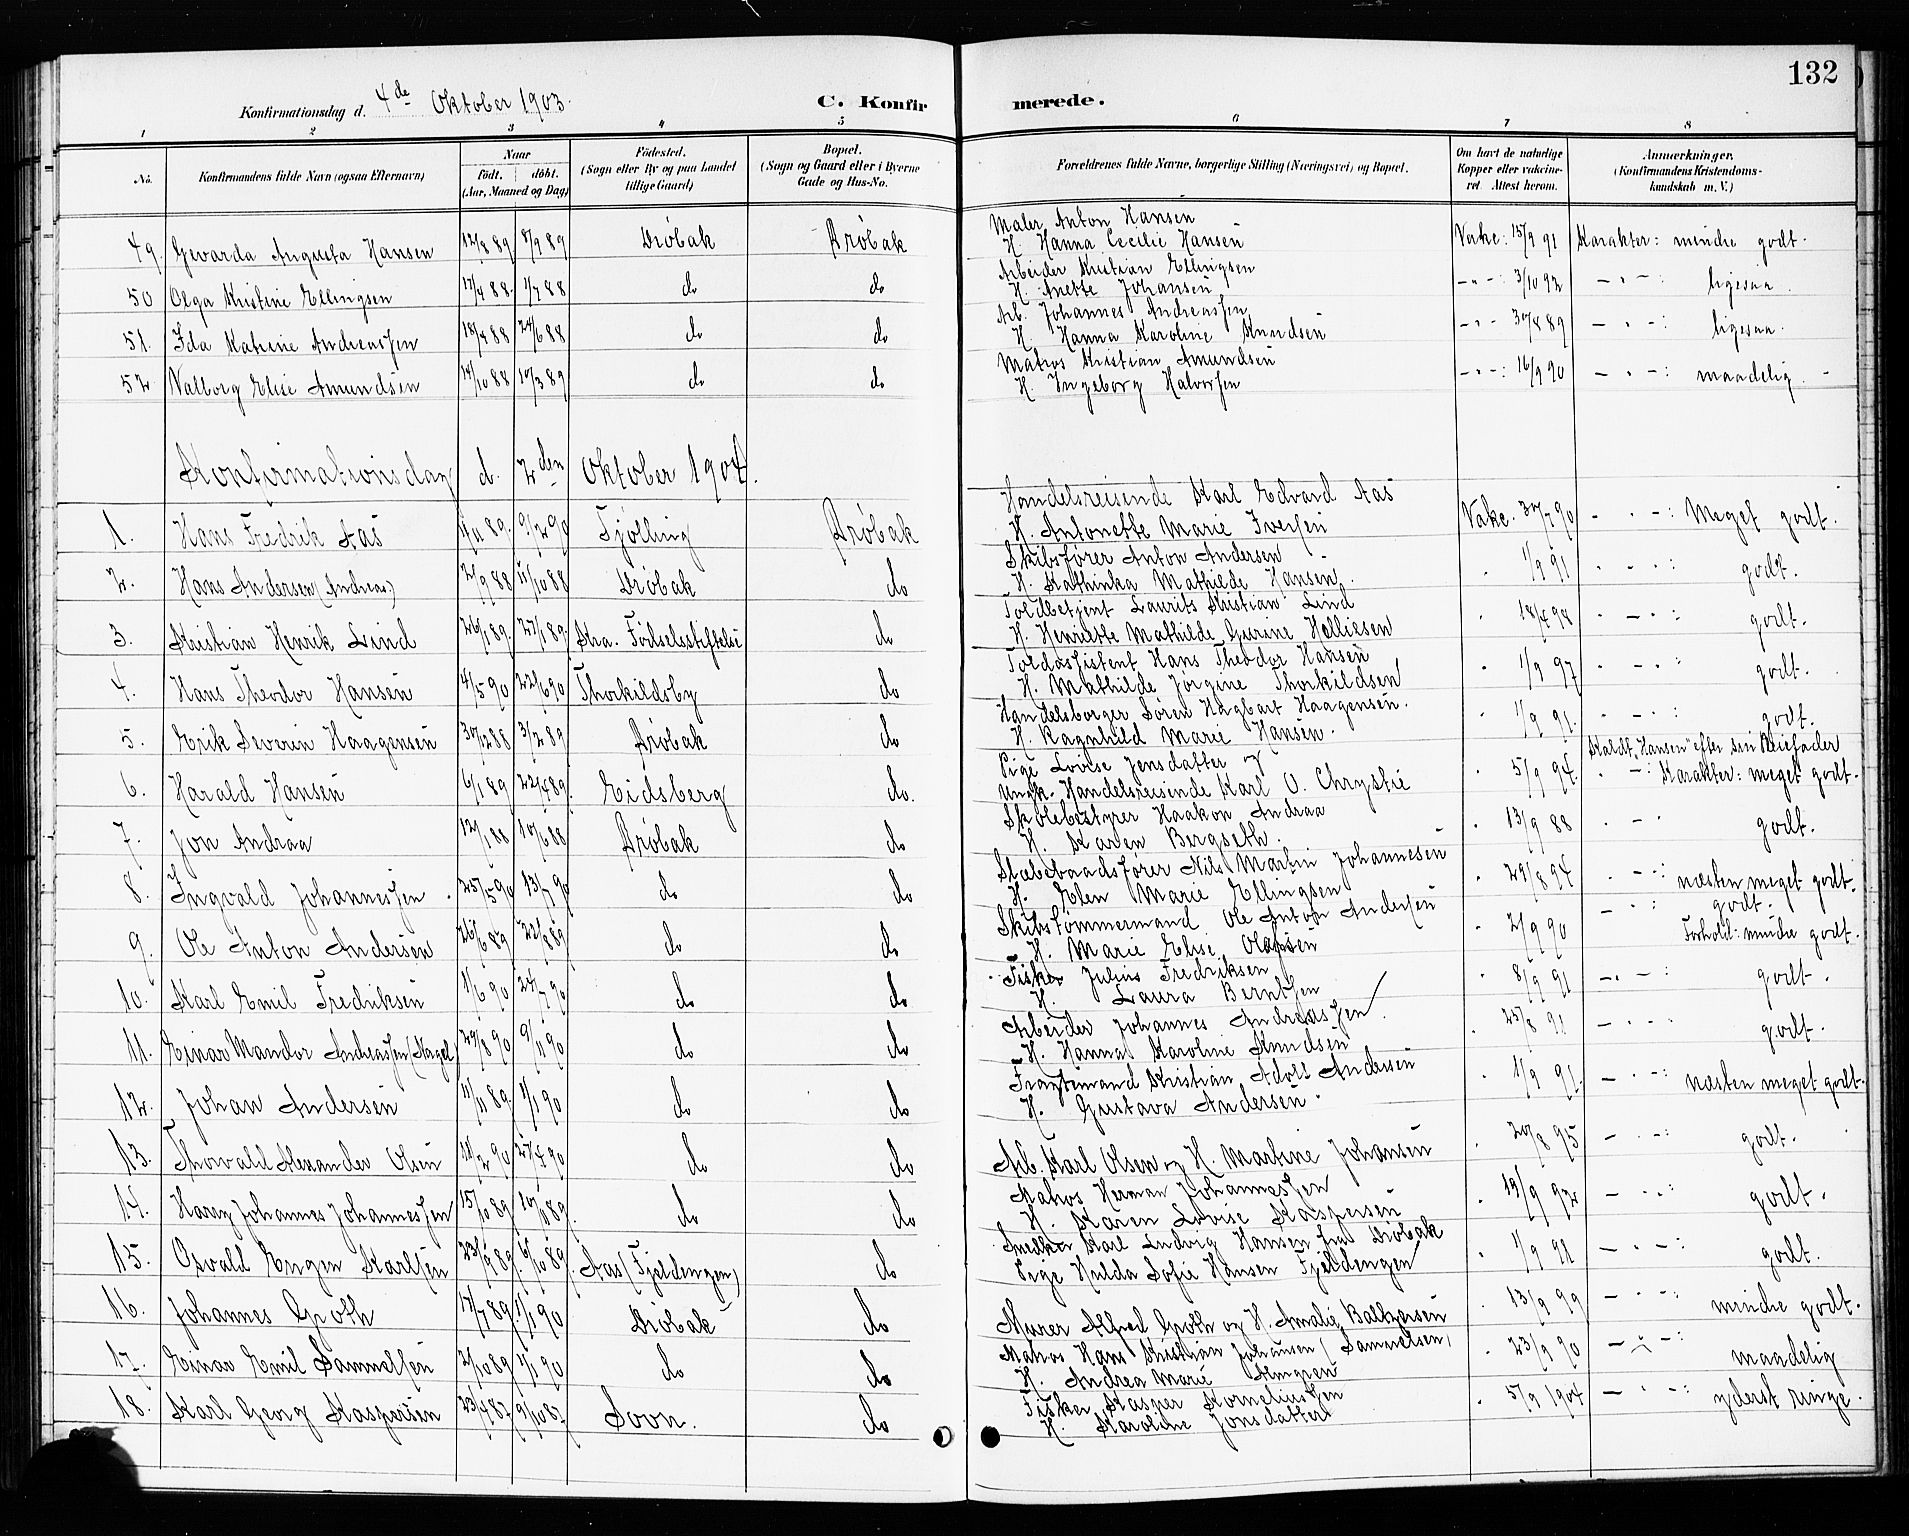 132
Konfirmationsdag d. 4de Oktober 1903. C. Konfirmerede.
1 2 3 4 5 6 7 8
No. Konfirmandens fulde Navn (ogsaa Efternavn) Naar født. døbt. (Aar, Maaned og Dag) Fødested. (Sogn eller By og paa Landet tillige Gaard) Bopæl. (Sogn og Gaard eller i Byerne Gade og Hus-No. Forældrenes fulde Navne, borgerlige Stilling (Næringsvei) og Bopæl. Om havt de naturlige Kopper eller vakcineret. Attest herom. Anmærkninger. (Konfirmandens Kristendomskundskab m. V.)
49. Gevarda Augusta Hansen 12/8 89 8/9 89 Drøbak Drøbak Maler Anton Hansen H. Hanna Cecilie Hansen Vakc: 15/9 91 Karakter: mindre godt.
50 Olga Kristine Ellingsen 17/4 88. 1/7 88 do do Arbeider Kristian Ellingsen H. Anette Johansen - " - : 3/10 92 - " - : ligesaa.
51. Ida Katrine Andreassen 18/4 88 24/6 88 do do Arb. Johannes Andreassen H. Hanna Karoline Knudsen - " - 30/8 89 - " - : ligesaa.
52 Valborg Elise Amundsen 14/10 88 10/3 89 do do Matros Kristian Amundsen H. Ingeborg Halvorsen - " - : 16/9 90 - " - : maadelig. -
Konfirmationsdag d. 2den Oktober 1904.
1. Hans Fredrik Aas 11/11 89. 9/2 90 Tjølling Drøbak Handelsreisende Karl Edvard Aas H. Antonette Marie Iversen Vakc. 30/7 90 - " - : Meget godt.
2. Hans Andersen (Andreas) 2/9 88 11/10 88 Drøbak do Skibsfører Anton Andersen H. Kathinka Mathilde Hansen. " 1/9 91 " - " : godt.
3. Kristian Henrik Lind 26/1 89. 27/1 89. Kra. Fødselsstiftelse do Toldbetjent Laurits Kristian Lind H. Henriette Mathilde Gurine Hellissen " 18/4 98 " - " : godt.
4. Hans Theodor Hansen 4/5 90 22/6 90 Thorkildsby do Toldassistent Hans Theodor Hansen H. Mathilde Jørgine Thorkildsen " 1/9 97 " - " : godt.
5. Erik Severin Haagensen 30/12 88 3/2 89 Drøbak do Handelsborger Søren Hagbart Haagensen. H. Ragnhild Marie Hansen. " 1/9 91. " - " : godt.
6. Harald Hansen 6/1 89 22/4 89. Eidsberg do. Pige Lovise Jensdatter og Ungk. Handelsreisende Karl O. Chrystie " 5/9 94. Kaldt "Hansen" efter sin Pleiefader " - : Karakter: meget godt.
7. Jon Andraa 12/1 88 10/6 88 Drøbak do Skolebestyrer Haakon Andraa H. Karen Bergseth. " 13/9 88 " - " godt.
8. Ingvald Johannessen. 25/5 90 13/7 90 do do Slæbebaadsfører Nils Martin Johannesen H. Elen Marie Ellingsen " 29/8 94 " - " : næsten meget godt.
9. Ole Anton Andersen 26/6 89 22/8 89 do do Skibstømmermand Ole Anton Andersen H. Marie Elise Olafsen " 2/9 90 - " : godt. Forhold: mindre godt.
10. Karl Emil Fredriksen 1/6 90 27/7 90 do do Fisker Julius Fredriksen H. Laura Berntsen " 8/9 91 - " - : godt.
11. Einar Mandor Andreassen (Nagel) 29/8 90 9/11 90 do do Arbeider Johannes Andreassen. H. Hanna Karoline Knudsen " 25/8 91 - " - " godt.
12. Johan Andersen 11/11 89 1/1 90 do do Fragtemand Kristian Adolf Andersen H. Gustava Andersen. " 1/9 91. - " - : næsten meget godt.
13. Thorvald Alexander Olsen 18/2 90 27/4 90 do do Arb. Karl Olsen og H. Martine Johansen " 20/8 95 - " - : godt.
14. Harry Johannes Johannessen 15/10 89. 10/11 89. do do Matros Herman Johannessen H. Karen Lovise Kaspersen " 19/9 92 - " - : godt.
15. Osvald Eugen Karlsen 23/9 89. 6/10 89. Aas (Fjeldengen) do Snedker Karl Ludvig Hansen fra Drøbak Pige Hilda Sofie Hansen Fjeldengen " 1/9 91 - " - : godt.
16. Johannes Groth 17/7 89. 1/1 90 Drøbak do Murer Alfred Groth og H. Amalie Baltzersen " 13/9 99 - " - : mindre godt.
17. Einar Emil Samuelsen 2/10 89 1/1 90 do do Matros Hans Kristian Johansen (Samuelsen) H. Andrea Marie Almgren " 23/9 90 - " - : maadelig
18. Karl Georg Kaspersen 23/4 87. 9/10 87. Soon. do Fisker Kasper Korneliussen H. Karoline Jonsdatter " 5/9 1904 - " - : yderst ringe.